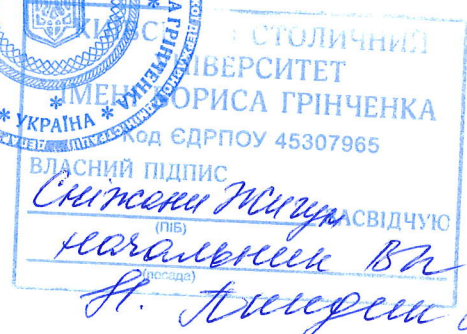 СТОЛИЧНИЙ
УНІВЕРСИТЕТ
ІМЕНІ БОРИСА ГРІНЧЕНКА
Код ЄДРПОУ 45307965
ВЛАСНИЙ ПІДПИС
Сніжани Жигун ЗАСВІДЧУЮ
(ПІБ)
начальник ВК
(посада)
Н.
* УКРАЇНА *